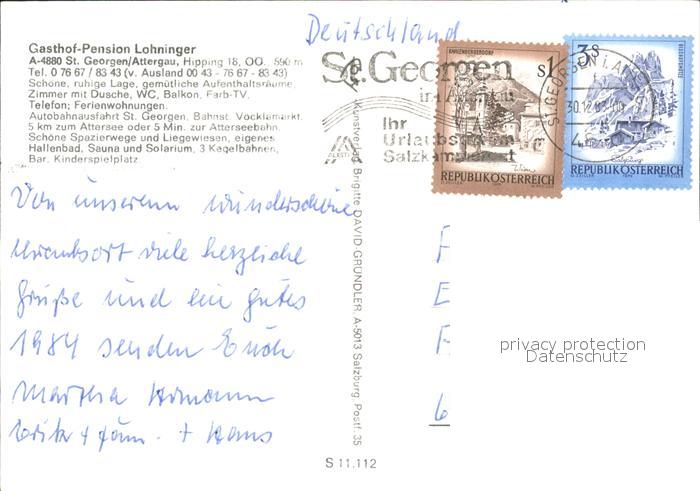 Deutschland
Gasthof-Pension Lohninger
A-4880 St. Georgen/Attergau, Hipping 18, OÖ. 590 m
Tel. 0 76 67 / 83 43 (v. Ausland 00 43 - 76 67 - 83 43)
Schöne, ruhige Lage, gemütliche Aufenthaltsräume,
Zimmer mit Dusche, WC, Balkon, Farb-TV.
Telefon; Ferienwohnungen.
Autobahnausfahrt St. Georgen, Bahnst. Vöcklamarkt.
5 km zum Attersee oder 5 Min. zur Atterseebahn.
Schöne Spazierwege und Liegewiesen, eigenes
Hallenbad, Sauna und Solarium, 3 Kegelbahnen,
Bar, Kinderspielplatz
Von unserem wunderschöne
Urlaubsort viele herzliche
Grüße und ein gutes
1984 senden Euch
Martha
+ Hans
Kunstverlag Brigitte DAVID GRÜNDLER, A-5013 Salzburg, Postf. 35
S 11.112
St. Georgen
im Attergau
Ihr
Urlaubs
Salzkammergut
ST. GEORGEN I. A.
30.12.
KAHLENBERGERDORF
S1
Wien
REPUBLIK ÖSTERREICH
3S
BISCHOFSMÜTZE
Salzburg
REPUBLIK ÖSTERREICH
F
E
F
6
privacy protection
Datenschutz